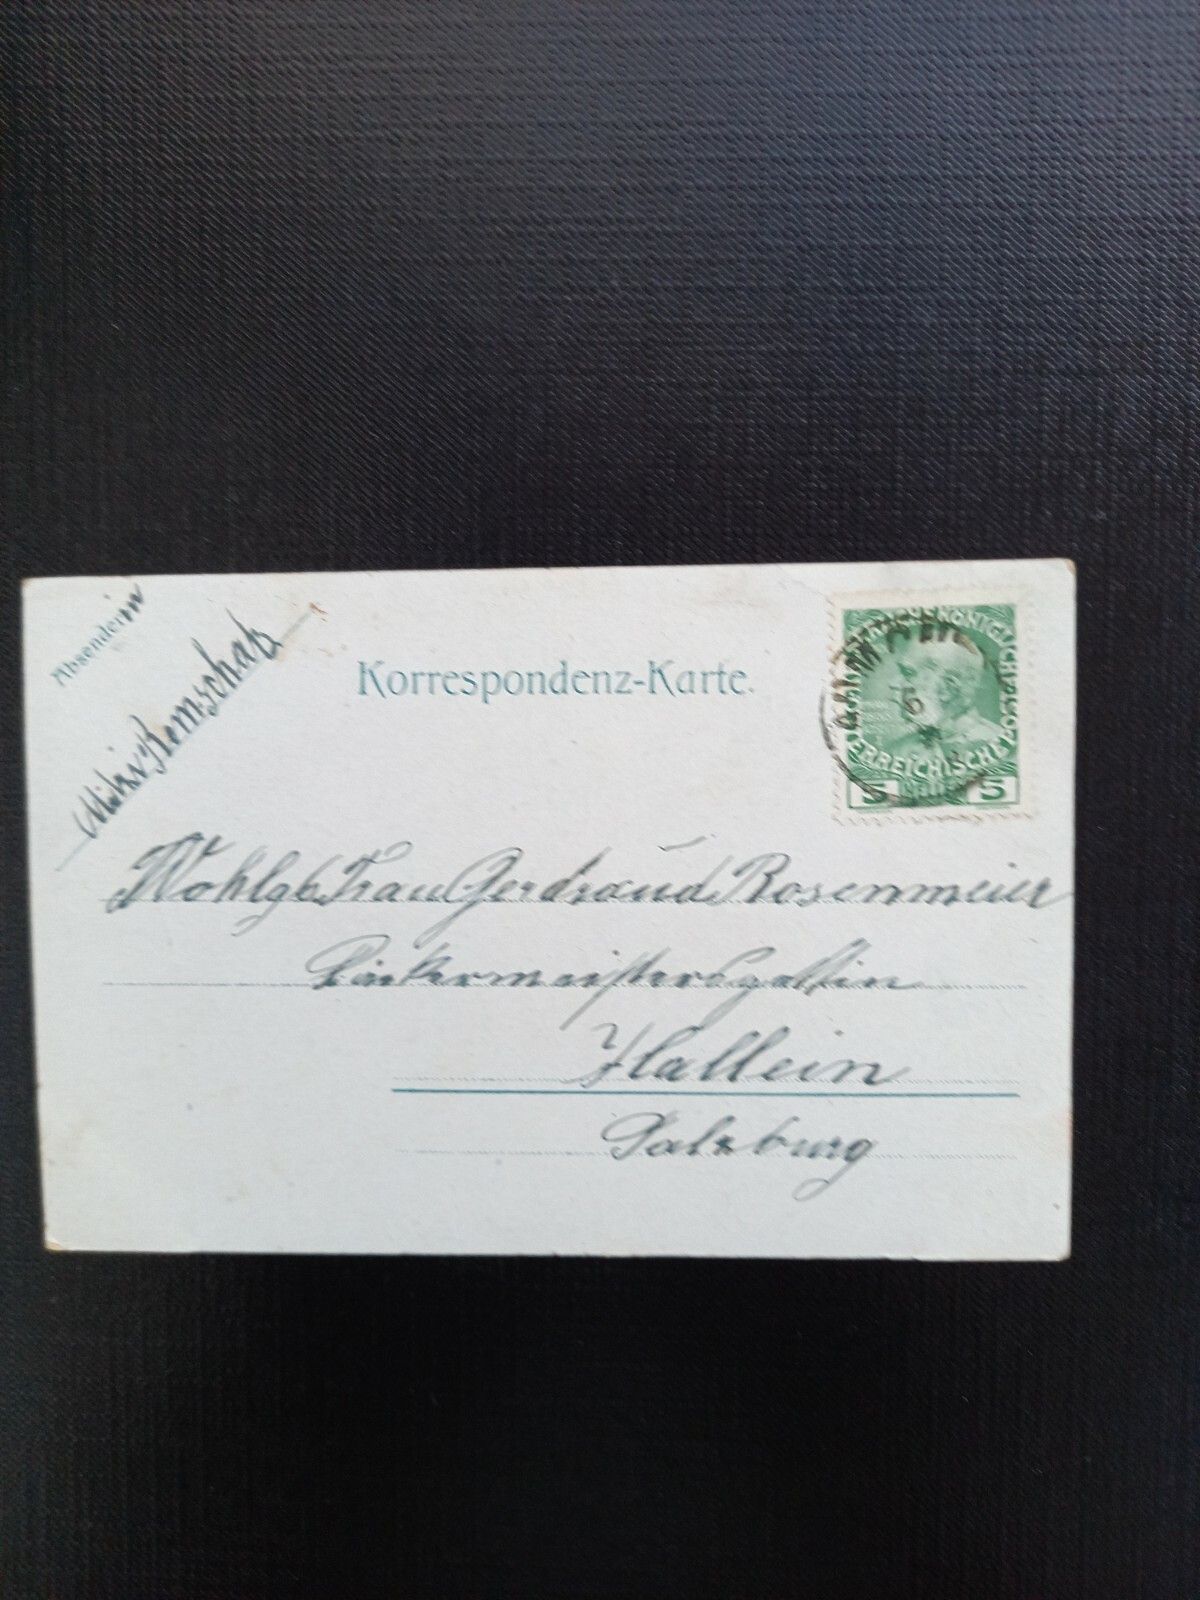 Absenderin
Remschak
Korrespondenz-Karte.
KAISERKÖNIGLICHE
ÖSTERREICHISCHE PO
5 5
Wohlgb Frau Gerdraud Rosenmeier
Bäckermeistersgattin
Hallein
Salzburg